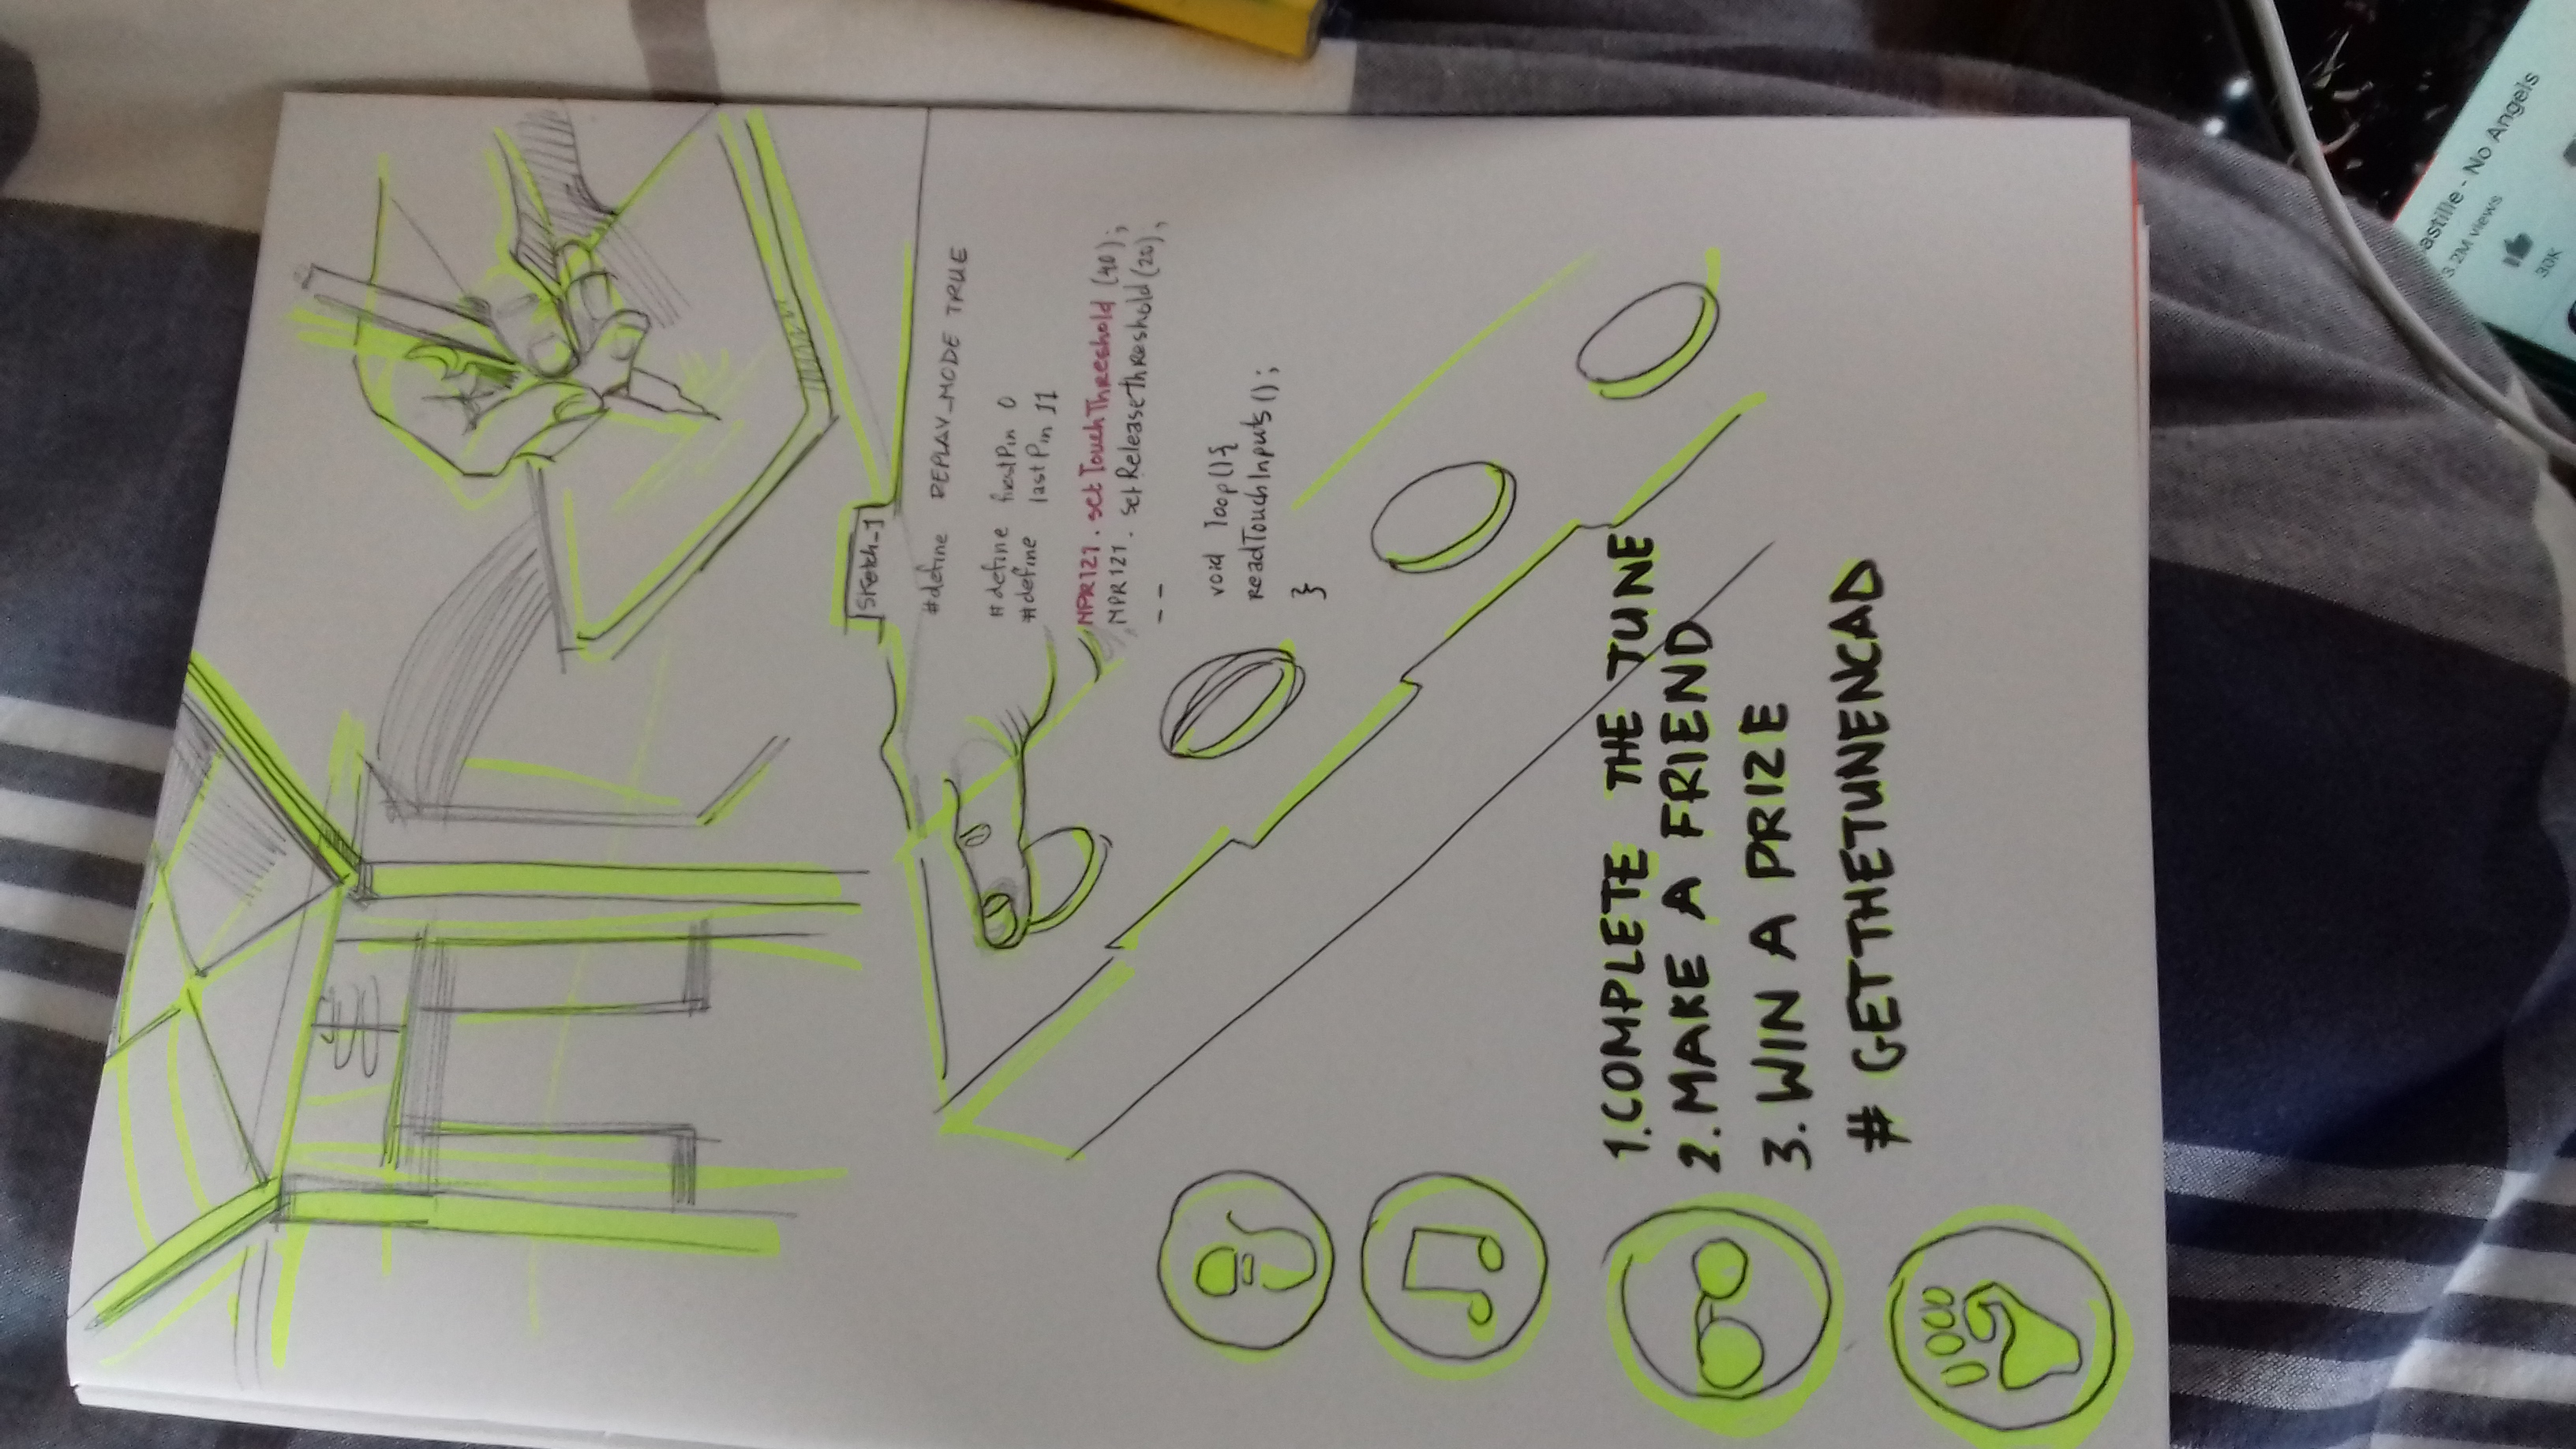 Sketch_1
#define REPLAY_MODE TRUE
#define firstPin 0
#define lastPin 11
MPR121.setTouchThreshold(40);
MPR121.setReleaseThreshold(20);
--
void loop(){
readTouchInputs();
}
1.COMPLETE THE TUNE
2.MAKE A FRIEND
3.WIN A PRIZE
#GETTHETUNENCAD
astille - No Angels
3.2M views
30K